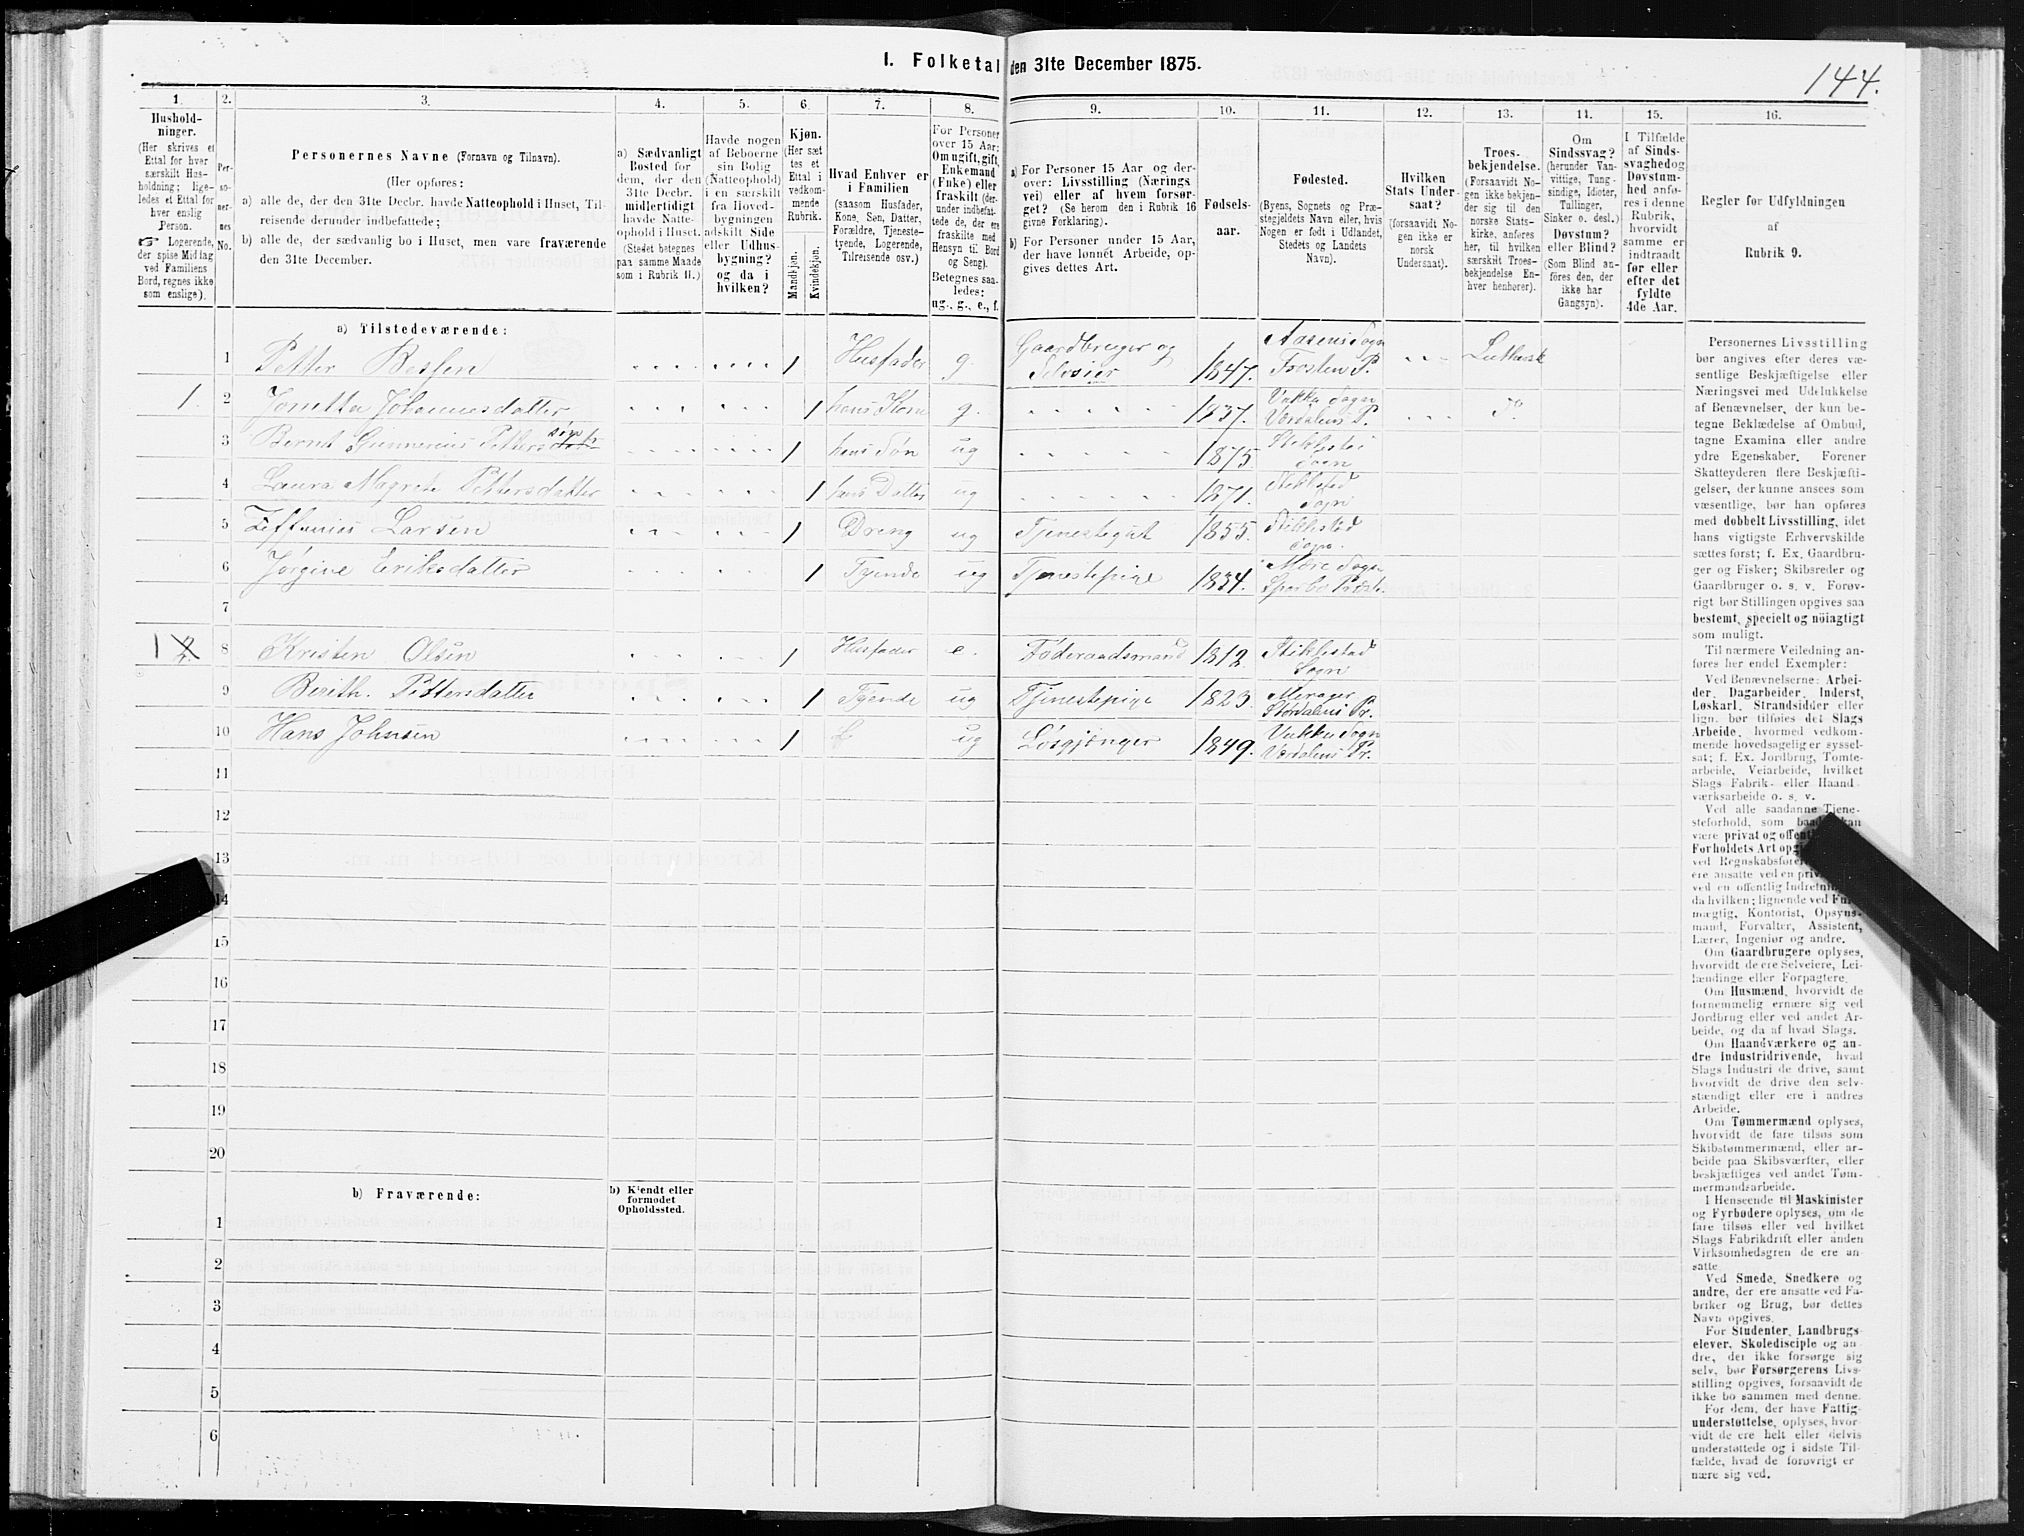 I. Folketal den 31te December 1875.
144.
1. 2. 3. 4. 5. 6. 7. 8. 9. 10. 11. 12. 13. 14. 15. 16.
Hushold-
ninger.
(Her skrives et
Ettal for hver
særskilt Hus-
holdning; lige-
ledes et Ettal for
hver enslig
Person.
☞ Logerende,
der spise Middag
ved Familiens
Bord, regnes ikke
som enslige).
Per-
so-
ner-
nes
No.
Personernes Navne (Fornavn og Tilnavn).
(Her opføres:
a) alle de, der den 31te Decbr. havde Natteophold i Huset, Til-
reisende derunder indbefattede;
b) alle de, der sædvanlig bo i Huset, men vare fraværende
den 31te December.
a) Sædvanligt
Bosted for
dem, der den
31te Decbr.
midlertidigt
havde Natte-
ophold i Huset.
(Stedet betegnes
paa samme Maade
som i Rubrik 11.)
Havde nogen
af Beboerne
sin Bolig
(Natteophold)
i en særskilt
fra Hoved-
bygningen
adskilt Side
eller Udhus-
bygning?
og da i
hvilken?
Kjøn.
(Her sæt
tes et
Ettal i
vedkom-
mende
Rubrik.
Mandkjøn.
Kvindekjøn.
Hvad Enhver er
i Familien
(saasom Husfader,
Kone, Søn, Datter,
Forældre, Tjeneste-
tyende, Logerende,
Tilreisende osv.)
For Personer
over 15 Aar:
Om ugift, gift,
Enkemand
(Enke) eller
fraskilt (der-
under indbefat-
tede de, der ere
fraskilte med
Hensyn til Bord
og Seng).
Betegnes saa-
ledes:
ug., g., e., f.
a) For Personer 15 Aar og der-
over: Livsstilling (Nærings
vei) eller af hvem forsør-
get? (Se herom den i Rubrik 16
givne Forklaring).
b) For Personer under 15 Aar,
der have lønnet Arbeide, op-
gives dettes Art.
Fødsels-
aar.
Fødested.
(Byens, Sognets og Præ-
stegjeldets Navn eller, hvis
Nogen er født i Udlandet,
Stedets og Landets
Navn).
Hvilken
Stats Under-
saat?
(forsaavidt No-
gen ikke er
norsk
Undersaat).
Troes-
bekjendelse.
(Forsaavidt No-
gen ikke bekjen-
der sig til den
norske Stats-
kirke, anføres
her, til hvilken
særskilt Troes-
bekjendelse En-
hver henhører).
Om
Sindssvag?
(herunder Van-
vittige, Tung-
sindige, Idioter,
Tullinger,
Sinker o. desl.)
Døvstum?
eller Blind?
(Som Blind an-
føres den, der
ikke har
Gangsyn).
I Tilfælde
af Sinds-
svaghed og
Døvstum-
hed anfø-
res i denne
Rubrik,
hvorvidt
samme er
indtraadt
før eller
efter det
fyldte
4de Aar.
Regler for Udfyldningen
af
Rubrik 9.
a) Tilstedeværende:
1 Petter 1 Husfader g. Gaardbruger og Selveier 1847. Aasens Sogn Frosten P. Luthersk
1. 2 Jonetta Johannesdatter 1 hans Kone g. 1837. Vukku Sogn Værdalens P. Do
3 Bernt Gunnerius Petterssøn 1 hans Søn ug 1875 Stiklestad Sogn
4 Laura Magrete Pettersdatter 1 hans Datter ug 1871. Stiklestad Sogn
5 Larsen 1 Dreng ug Tjenestegut 1855. Stiklestad Sogn.
6 Jørgine Eriksdatter 1 Tyende ug Tjenestepige 1834. Mære Sogn Sparbo Præst.
7
1 2. 8 Kristen Olsen 1 Husfader e. Føderaadsmand 1812. Stiklestad Sogn
9 Berith. Pettersdatter 1 Tyende ug Tjenestepige 1823. Merager Størdalens Pr.
10 Hans Johnsen 1 f ug Løsgjænger 1849. Vukku Sogn Værdalens Pr.
11
12
13
14
15
16
17
18
19
20
b) Fraværende:
b) Kjendt eller
formodet
Opholdssted.
1
2
3
4
5
6
Personernes Livsstilling
bør angives efter deres væ-
sentlige Beskjæftigelse eller
Næringsvei med Udelukkelse
af Benævnelser, der kun be-
tegne Beklædelse af Ombud,
tagne Examina eller andre
ydre Egenskaber. Forener
Skatteyderen flere Beskjæfti-
gelser, der kunne ansees som
væsentlige, bør han opføres
med dobbelt Livsstilling, idet
hans vigtigste Erhvervskilde
sættes først; f. Ex. Gaardbru-
ger og Fisker; Skibsreder og
Gaardbruger o. s. v. Forøv-
rigt bør Stillingen opgives saa
bestemt, specielt og nøiagtigt
som muligt.
Til nærmere Veiledning an-
føres her endel Exempler:
Ved Benævnelserne: Arbei-
der, Dagarbeider, Inderst,
Løskarl, Strandsidder eller
lign. bør tilføies det Slags
Arbeide, hvormed vedkom-
mende hovedsagelig er syssel-
sat; f. Ex. Jordbrug, Tomte-
arbeide, Veiarbeide, hvilket
Slags Fabrik- eller Haand-
værksarbeide o. s. v.
Ved alle saadanne Tjene-
steforhold, som baade kan
være privat og
Forholdets Art
ved
ere ansatte ved en
ved en offentlig
da hvilken; lignende ved
mægtig, Kontorist, Opsyns-
mand, Forvalter, Assistent,
Lærer, Ingeniør og andre.
Om Gaardbrugere oplyses,
hvorvidt de ere Selveiere, Lei-
lændinge eller Forpagtere.
Om Husmænd, hvorvidt de
fornemmelig ernære sig ved
Jordbrug eller ved andet Ar-
beide, og da af hvad Slags.
Om Haandværkere og an-
dre Industridrivende, hvad
Slags Industri de drive, samt
hvorvidt de drive den selv-
stændigt eller ere i andres
Arbeide.
Om Tømmermænd oplyses,
hvorvidt de fare tilsøs som
Skibstømmermænd, eller ar-
beide paa Skibsværfter, eller
beskjæftiges ved andet Tøm-
mermandsarbeide.
I Henseende til Maskinister
og Fyrbødere oplyses, om de
fare tilsøs eller ved hvilket
Slags Fabrikdrift eller anden
Virksomhedsgren de ere an-
satte.
Ved Smede, Snedkere og
andre, der ere ansatte ved Fa-
briker og Brug, bør dettes
Navn opgives.
For Studenter, Landbrugs-
elever, Skoledisciple og an-
dre, der ikke forsørge sig
selv, bør Forsørgerens Livs-
stilling opgives, forsaavidt de
ikke bo sammen med denne.
For dem, der have Fattig-
understøttelse, oplyses, hvor-
vidt de ere helt eller delvis
understøttede og i sidste Til-
fælde, hvad de forøvrigt er
nære sig ved.